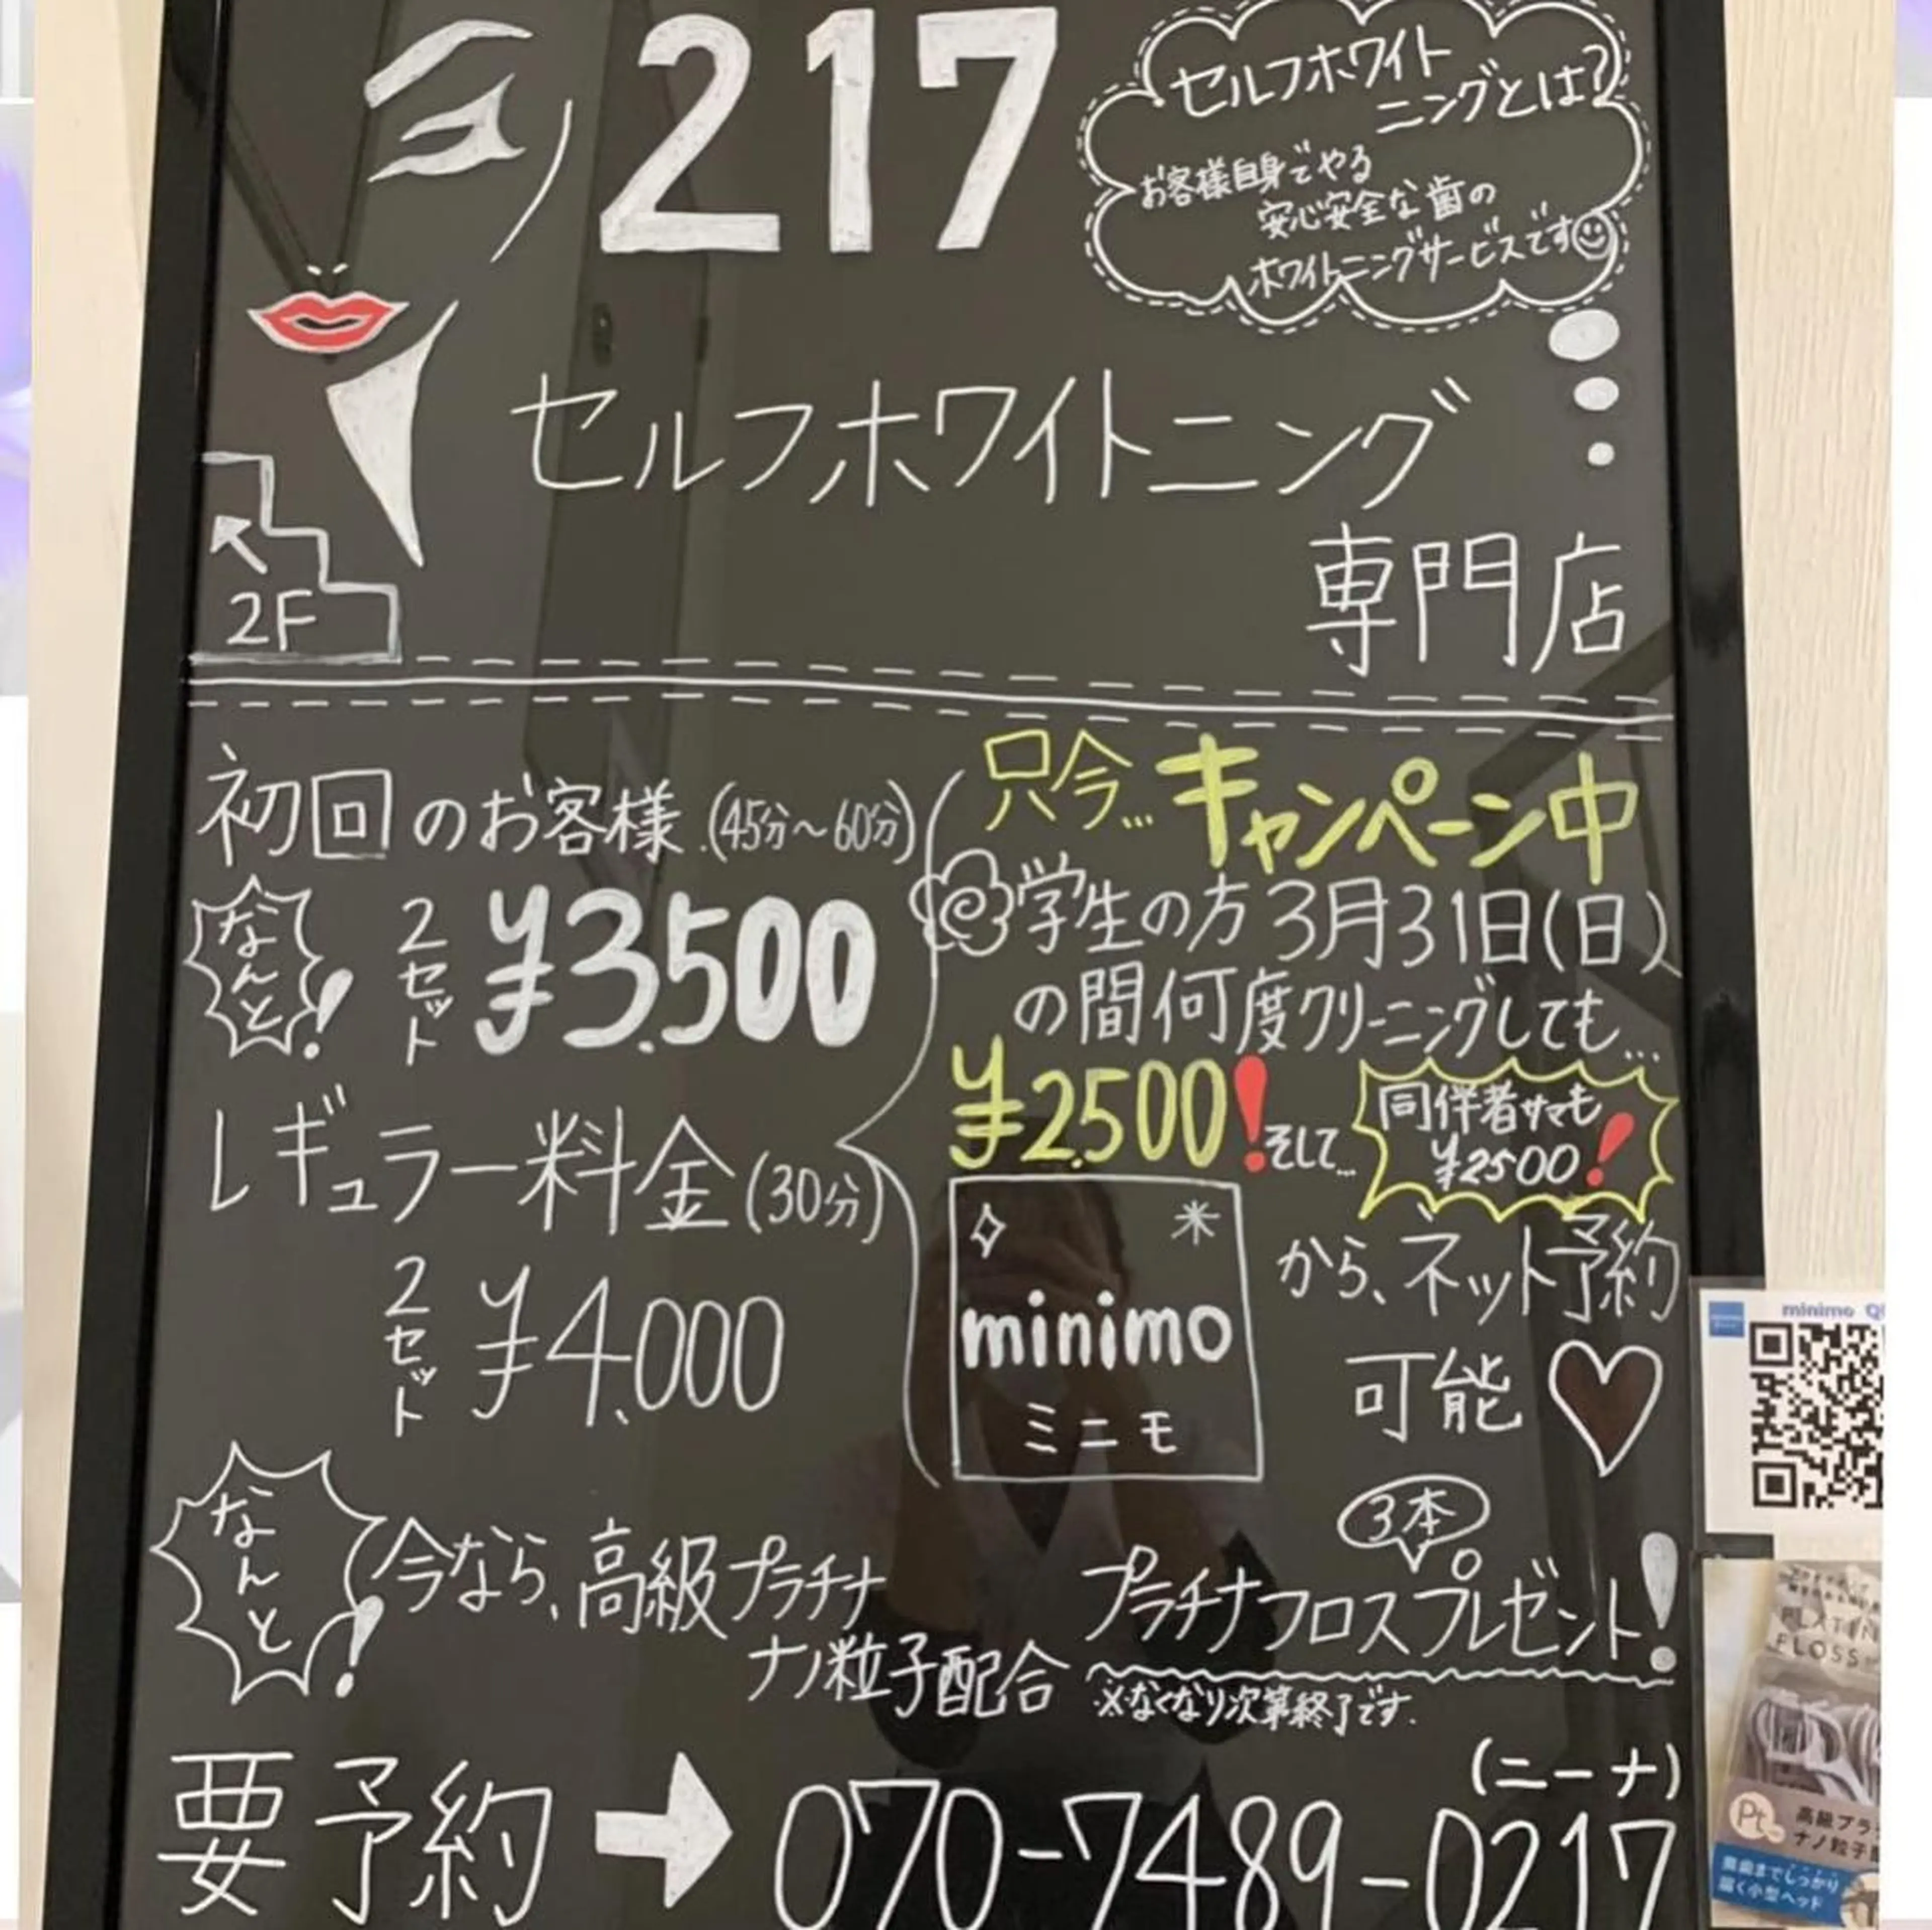 217
セルフホワイト
ニングとは?
お客様自身でやる
安心安全な歯の
ホワイトニングサービスです
セルフホワイトニング
専門店
2F
初回のお客様(45分~60分)
なんと!
2セット ¥3.500
レギュラー料金(30分)
2セット ¥4.000
只今…キャンペーン中
学生の方3月31日(日)
の間何度クリーニングしても…
¥2.500!そして…
同伴者サマも
¥2500!
minimo
ミニモ
から、ネット予約
可能♡
なんと!
今なら、高級プラチナ
ナノ粒子配合
3本
プラチナフロスプレゼント!
※なくなり次第終了です.
(ニーナ)
要予約➡070-7489-0217
minimo
FLOSS
Pt
高級プラ
ナノ粒子
奥歯までしっかり
届く小型ヘッド